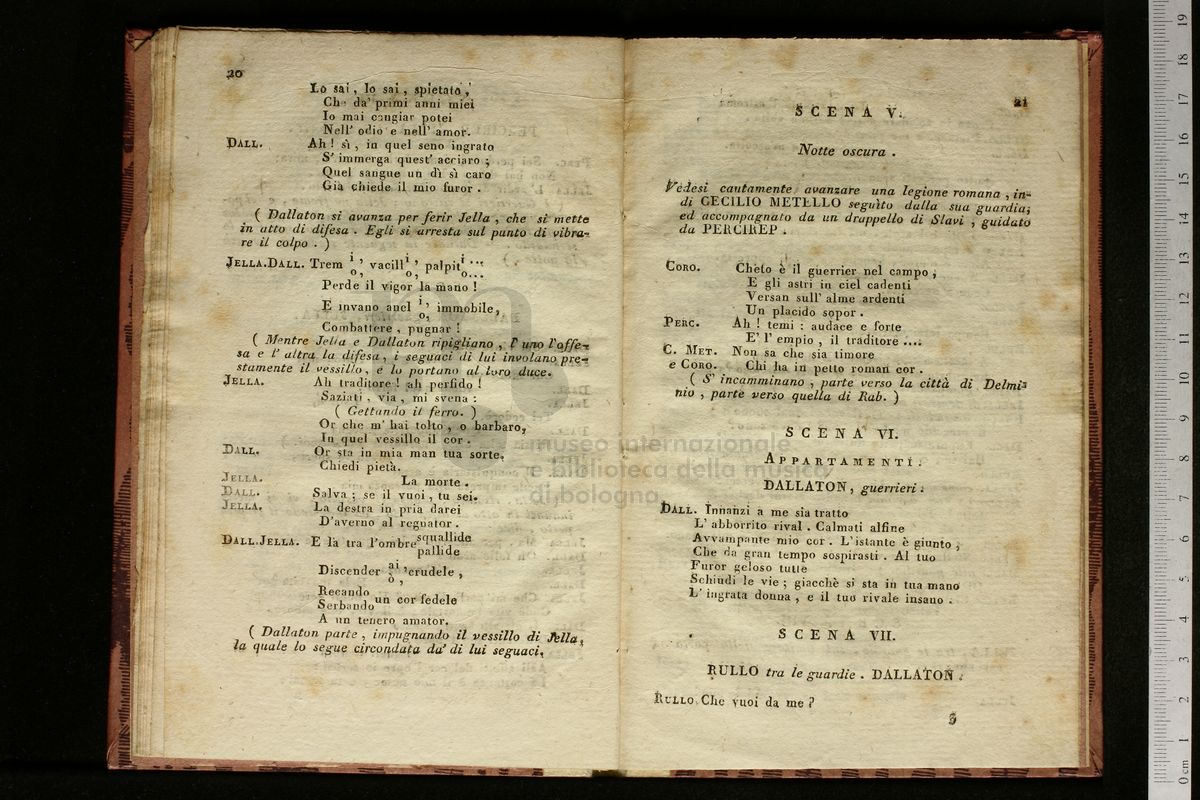 20
Lo sai, lo sai, spietato,
Che da' primi anni miei
Io mai cangiar potei
Nell' odio e nell' amor.
DALL. Ah! sì, in quel seno ingrato
S' immerga quest' acciaro;
Quel sangue un dì sì caro
Già chiede il mio furor.
( Dallaton si avanza per ferir Jella, che si mette
in atto di difesa. Egli si arresta sul punto di vibra-
re il colpo. )
JELLA.DALL. Trem i, o, vacill i, o, palpit i... o...
Perde il vigor la mano!
E invano anel i, o, immobile,
Combattere, pugnar!
( Mentre Jella e Dallaton ripigliano, l' uno l'offe-
sa e l' altra la difesa, i seguaci di lui involano pre-
stamente il vessillo, e lo portano al loro duce.
JELLA. Ah traditore! ah perfido!
Saziati, via, mi svena:
( Gettando il ferro. )
Or che m' hai tolto, o barbaro,
In quel vessillo il cor.
DALL. Or sta in mia man tua sorte,
Chiedi pietà.
JELLA. La morte.
DALL. Salva; se il vuoi, tu sei.
JELLA. La destra in pria darei
D'averno al regnator.
DALL.JELLA. E là tra l'ombre squallide
pallide
Discender ai, ò, crudele,
Recando
Serbando un cor fedele
A un tenero amator.
( Dallaton parte, impugnando il vessillo di Jella,
la quale lo segue circondata da' di lui seguaci,
21
SCENA V.
Notte oscura.
Vedesi cautamente avanzare una legione romana, in-
di CECILIO METELLO seguito dalla sua guardia;
ed accompagnato da un drappello di Slavi, guidato
da PERCIREP.
CORO. Cheto è il guerrier nel campo,
E gli astri in ciel cadenti
Versan sull' alme ardenti
Un placido sopor.
PERC. Ah! temi: audace e forte
E' l' empio, il traditore ....
C. MET. Non sa che sia timore
e CORO. Chi ha in petto roman cor.
( S' incamminano, parte verso la città di Delmi-
nio, parte verso quella di Rab. )
SCENA VI.
APPARTAMENTI.
DALLATON, guerrieri.
DALL. Innanzi a me sia tratto
L' abborrito rival. Calmati alfine
Avvampante mio cor. L'istante è giunto,
Che da gran tempo sospirasti. Al tuo
Furor geloso tutte
Schiudi le vie; giacchè si sta in tua mano
L' ingrata donna, e il tuo rivale insano.
SCENA VII.
RULLO tra le guardie. DALLATON.
RULLO. Che vuoi da me?
3
museo internazionale
e biblioteca della musica
di bologna
0 cm 1 2 3 4 5 6 7 8 9 10 11 12 13 14 15 16 17 18 19